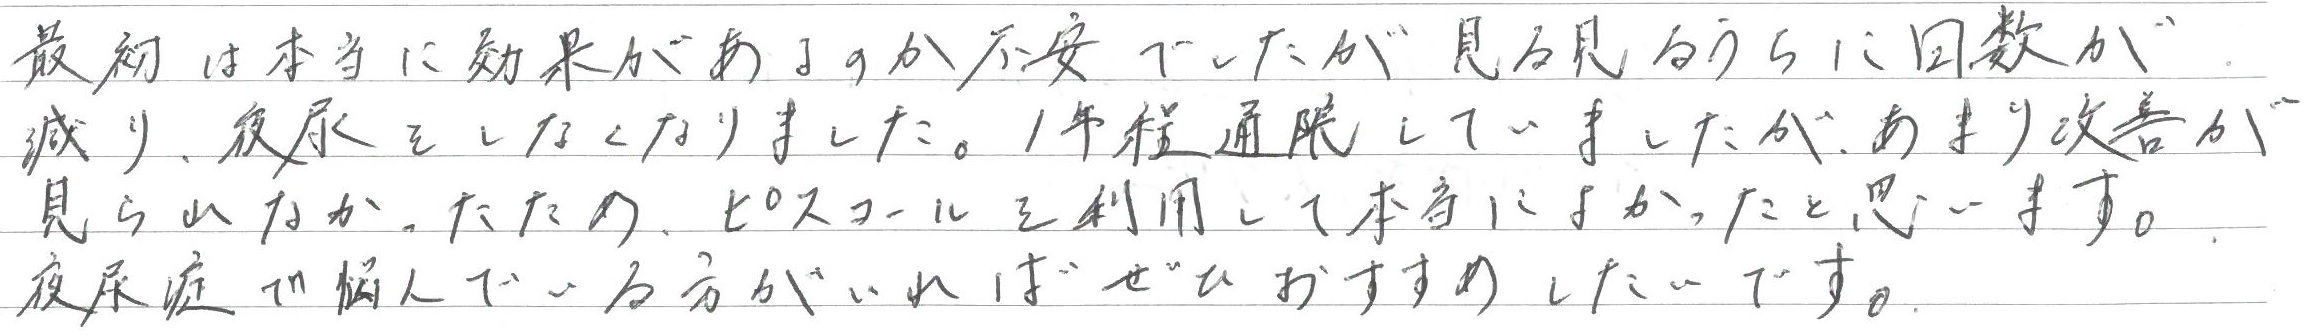 最初は本当に効果があるのか不安でしたが見る見るうちに回数が
減り、夜尿をしなくなりました。1年程通院していましたが、あまり改善が
見られなかったため、ピスコールを利用して本当によかったと思います。
夜尿症で悩んでいる方がいればぜひおすすめしたいです。